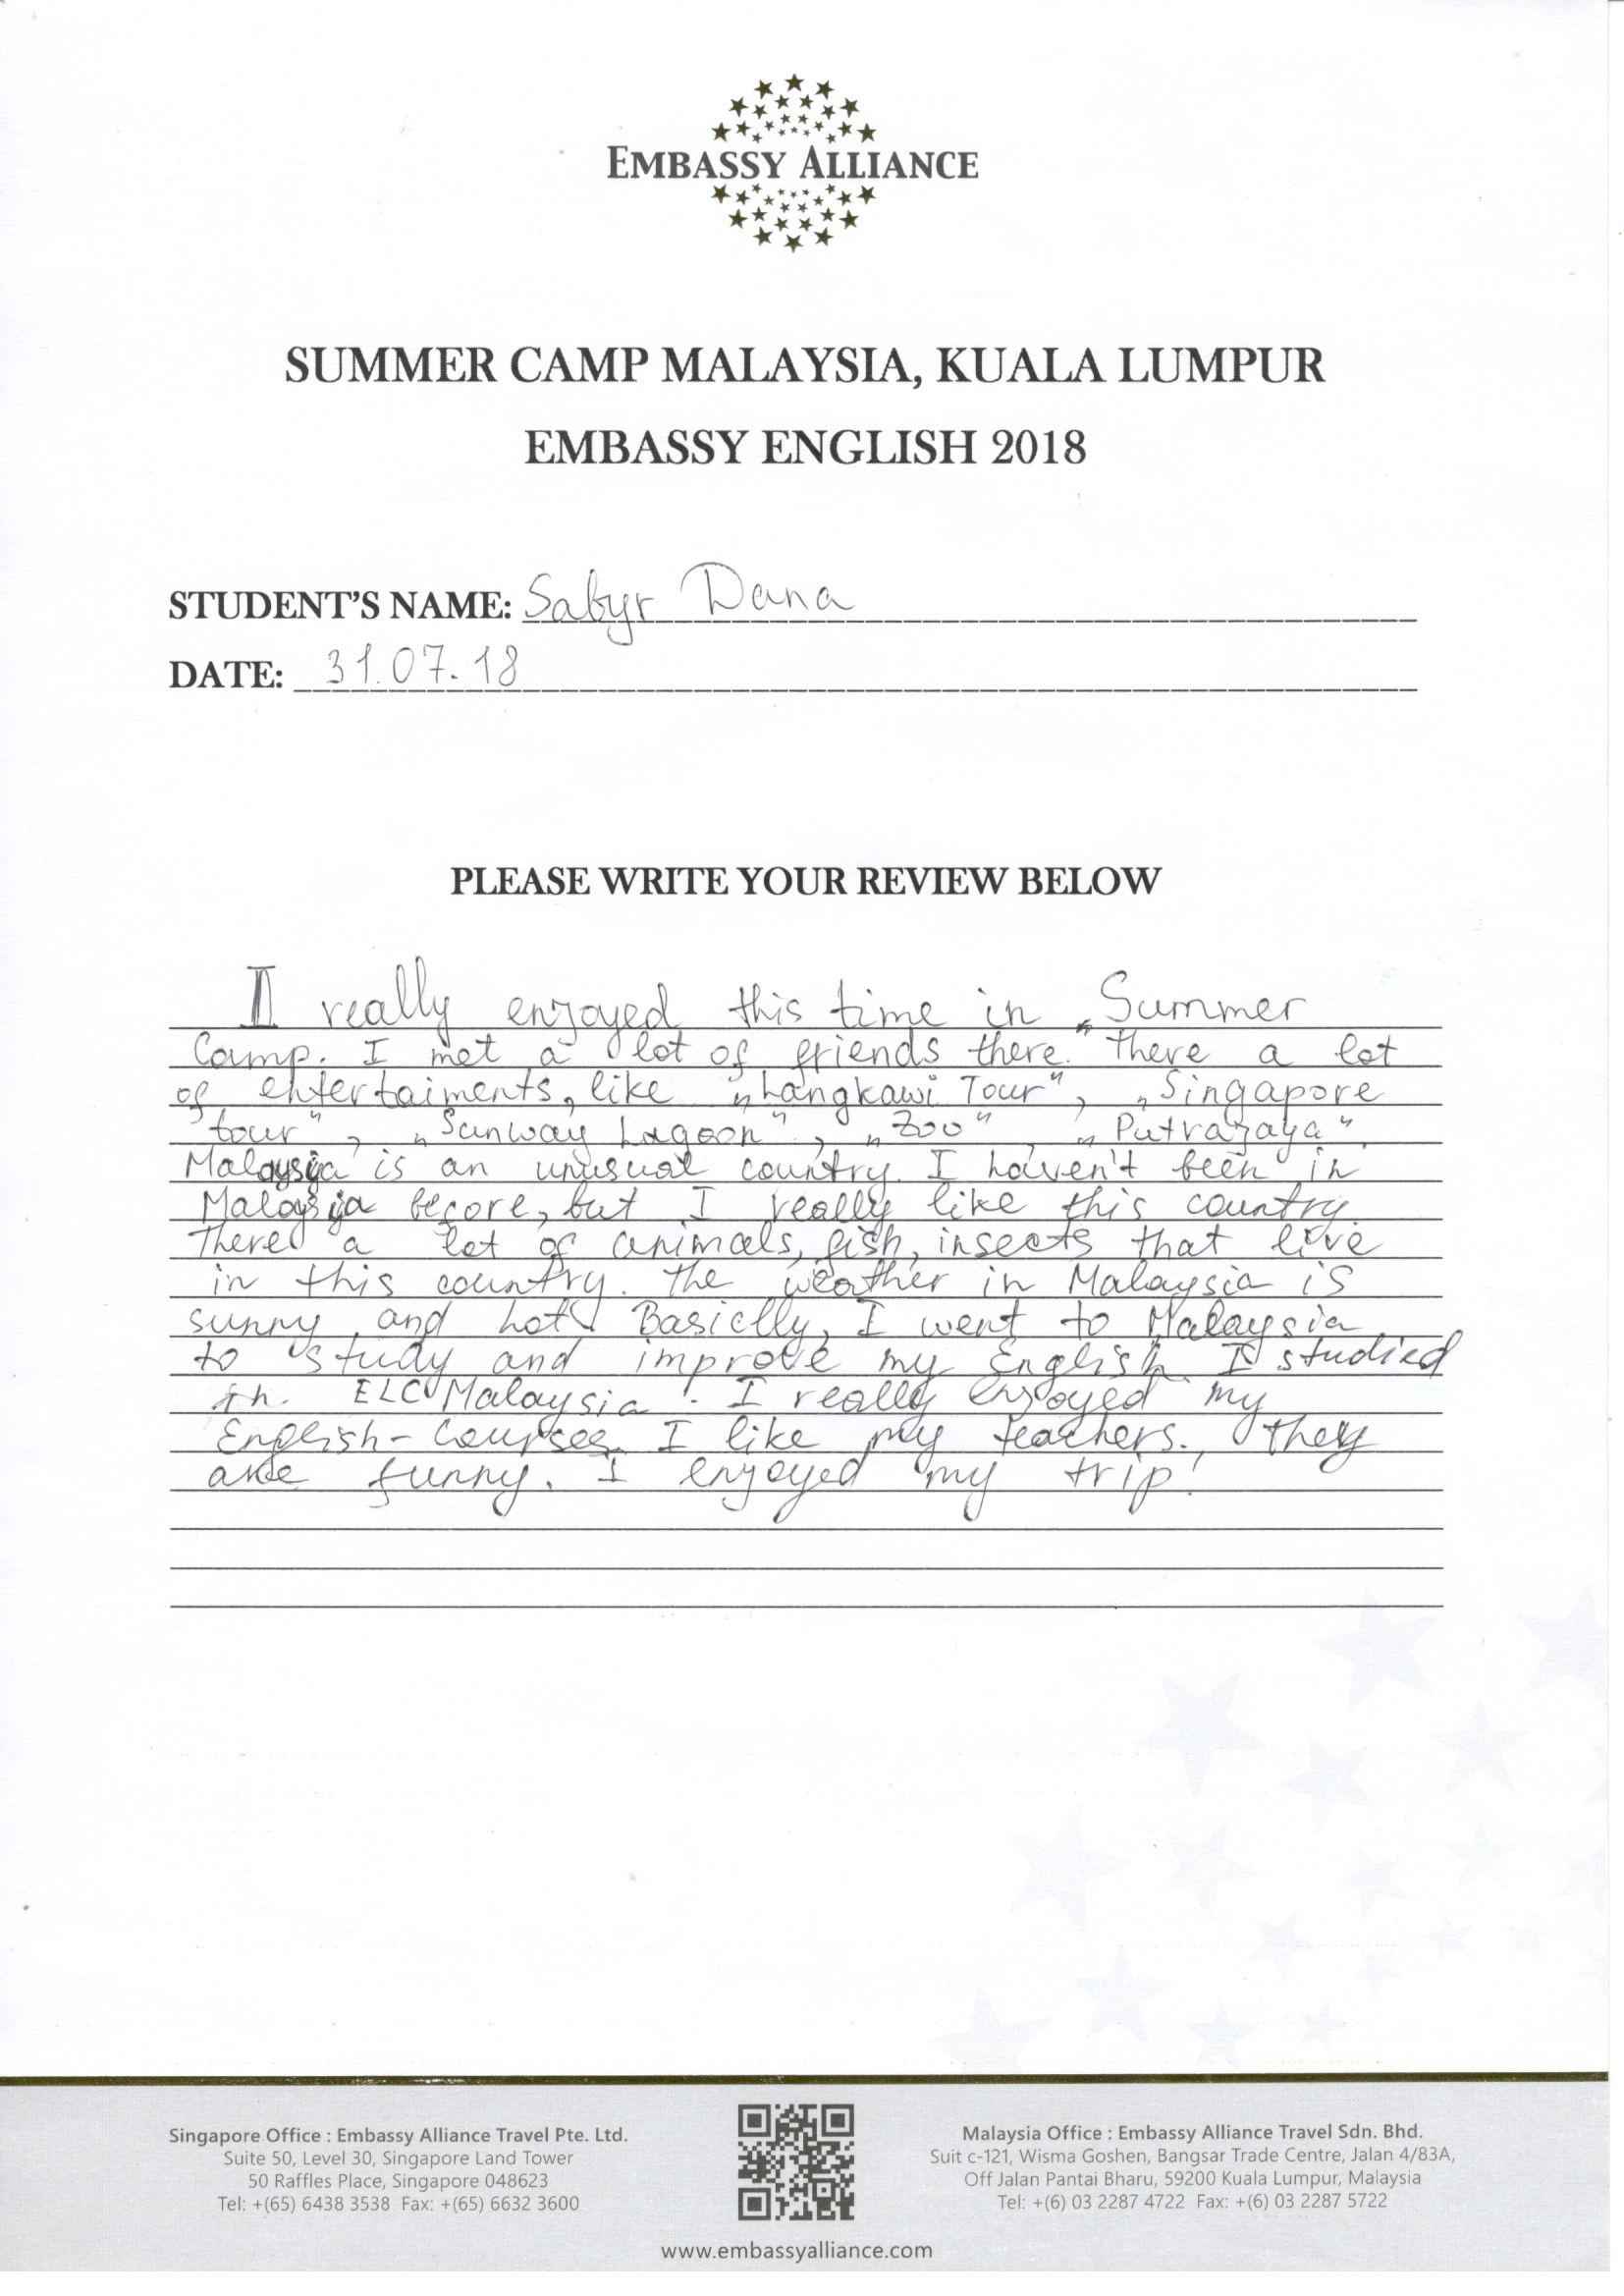 EMBASSY ALLIANCE
SUMMER CAMP MALAYSIA, KUALA LUMPUR
EMBASSY ENGLISH 2018
STUDENT'S NAME: Sabyr Dana
DATE: 31.07.18
PLEASE WRITE YOUR REVIEW BELOW
I really enjoyed this time in „Summer
Camp. I met a lot of friends there." There a lot
of entertaiments, like „Langkawi Tour", „Singapore
tour", „Sunway Lagoon", „Zoo", „Putrajaya".
Malaysia is an unusual country. I haven't been in
Malaysia before, but I really like this country.
There a lot of animals, fish, insects that live
in this country. The weather in Malaysia is
sunny and hot. Basiclly, I went to Malaysia
to study and improve my English. I studied
in ELC Malaysia. I really enjoyed my
English-courses. I like my teachers., they
are funny. I enjoyed my trip!
Singapore Office : Embassy Alliance Travel Pte. Ltd.
Suite 50, Level 30, Singapore Land Tower
50 Raffles Place, Singapore 048623
Tel: +(65) 6438 3538 Fax: +(65) 6632 3600
Malaysia Office : Embassy Alliance Travel Sdn. Bhd.
Suit c-121, Wisma Goshen, Bangsar Trade Centre, Jalan 4/83A,
Off Jalan Pantai Bharu, 59200 Kuala Lumpur, Malaysia
Tel: +(6) 03 2287 4722 Fax: +(6) 03 2287 5722
www.embassyalliance.com